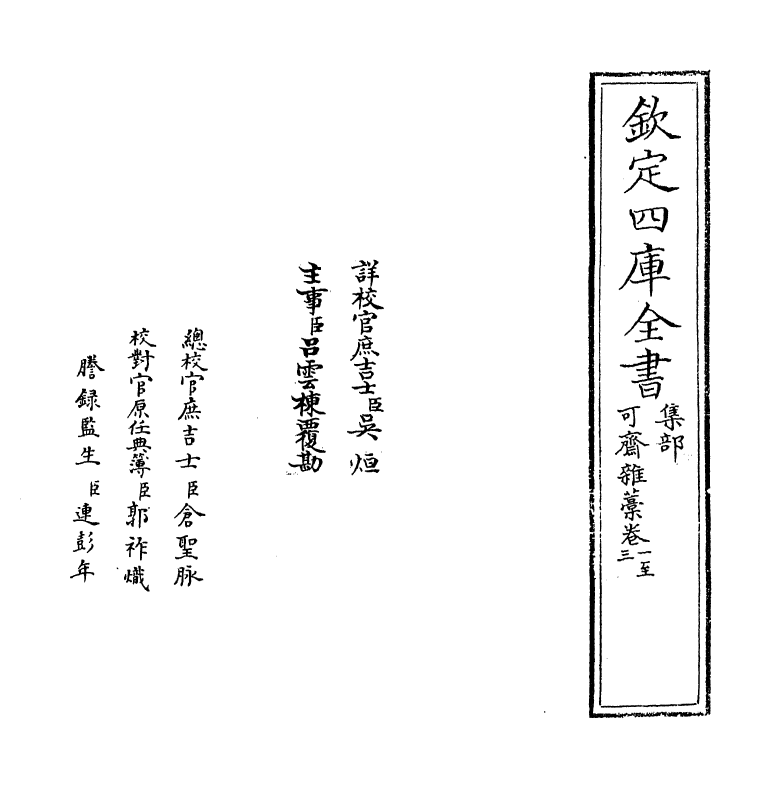 欽定四庫全書
集部
可齋雜藁卷一至三
詳校官庶吉士臣吳烜
主事臣呂雲棟覆勘
總校官庶吉士臣倉聖脉
校對官原任典簿臣郭祚熾
謄録監生臣連彭年